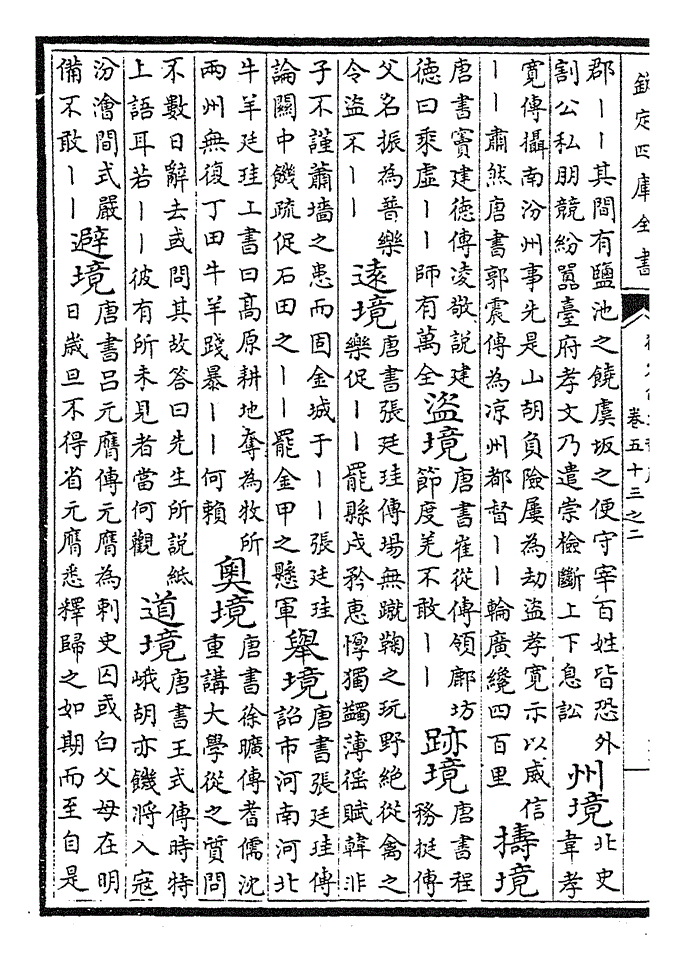 欽定四庫全書
卷五十三之二
郡丨丨其間有鹽池之饒虞坂之便守宰百姓皆恐外
割公私朋競紛囂臺府孝文乃遣崇檢斷上下息訟
州境
北史
韋孝
寛傳攝南汾州事先是山胡負險屢為劫盜孝寛示以威信
丨丨肅然唐書郭震傳為凉州都督丨丨輪廣纔四百里
擣境
唐書竇建德傳凌敬説建
德曰乘虛丨丨師有萬全
盜境
唐書崔從傳領鄜坊
節度羌不敢丨丨
跡境
唐書程
務挺傳
父名振為普樂
令盜不丨丨
遠境
唐書張廷珪傳場無蹴鞠之玩野絶從禽之
樂促丨丨罷縣戍矜惠惸獨蠲薄徭賦韓非
子不謹蕭墻之患而固金城于丨丨張廷珪
論關中饑疏促石田之丨丨罷金甲之懸軍
舉境
唐書張廷珪傳
詔市河南河北
牛羊廷珪上書曰高原耕地奪為牧所
兩州無復丁田牛羊踐暴丨丨何賴
奥境
唐書徐曠傳耆儒沈
重講大學從之質問
不數日辭去或問其故答曰先生所説紙
上語耳若丨丨彼有所未見者當何觀
道境
唐書王式傳時特
峨胡亦饑將入寇
汾澮間式嚴
備不敢丨丨
避境
唐書吕元膺傳元膺為刺史囚或白父母在明
日歲旦不得省元膺悉釋歸之如期而至自是